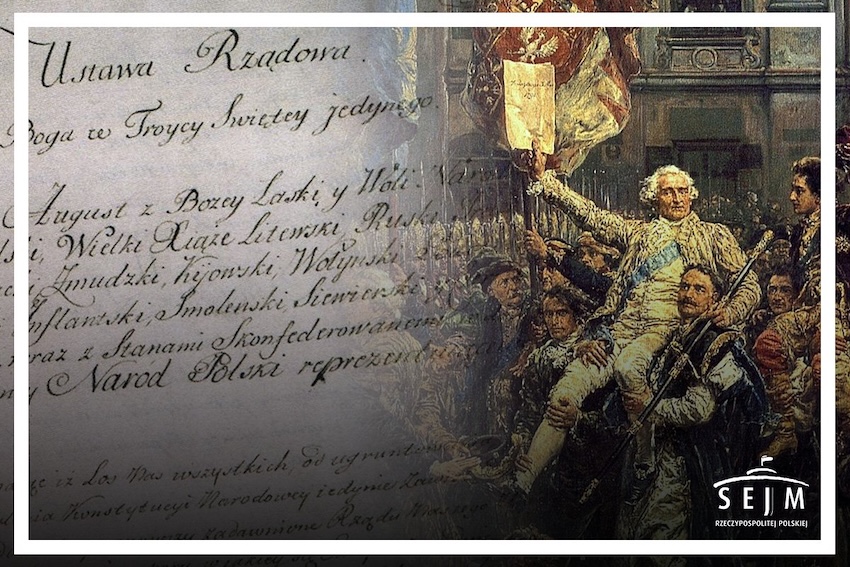 Ustawa Rządowa.
Boga w Troycy Swiętey jedynego.
August z Bożey Łaski, y Woli Narod
lski, Wielki Xiąże Litewski, Ruski
Zmudzki, Kijowski, Wołynski
Inflantski, Smolenski, Siewierski y
wraz z Stanami Skonfederowanemi
Narod Polski reprezentuiącemi
iż Los Nas wszystkich, od ugruntow
Konstytucyi Narodowey iedynie Zawi
zadawnione Rządu Naszego
SEJM
RZECZYPOSPOLITEJ POLSKIEJ